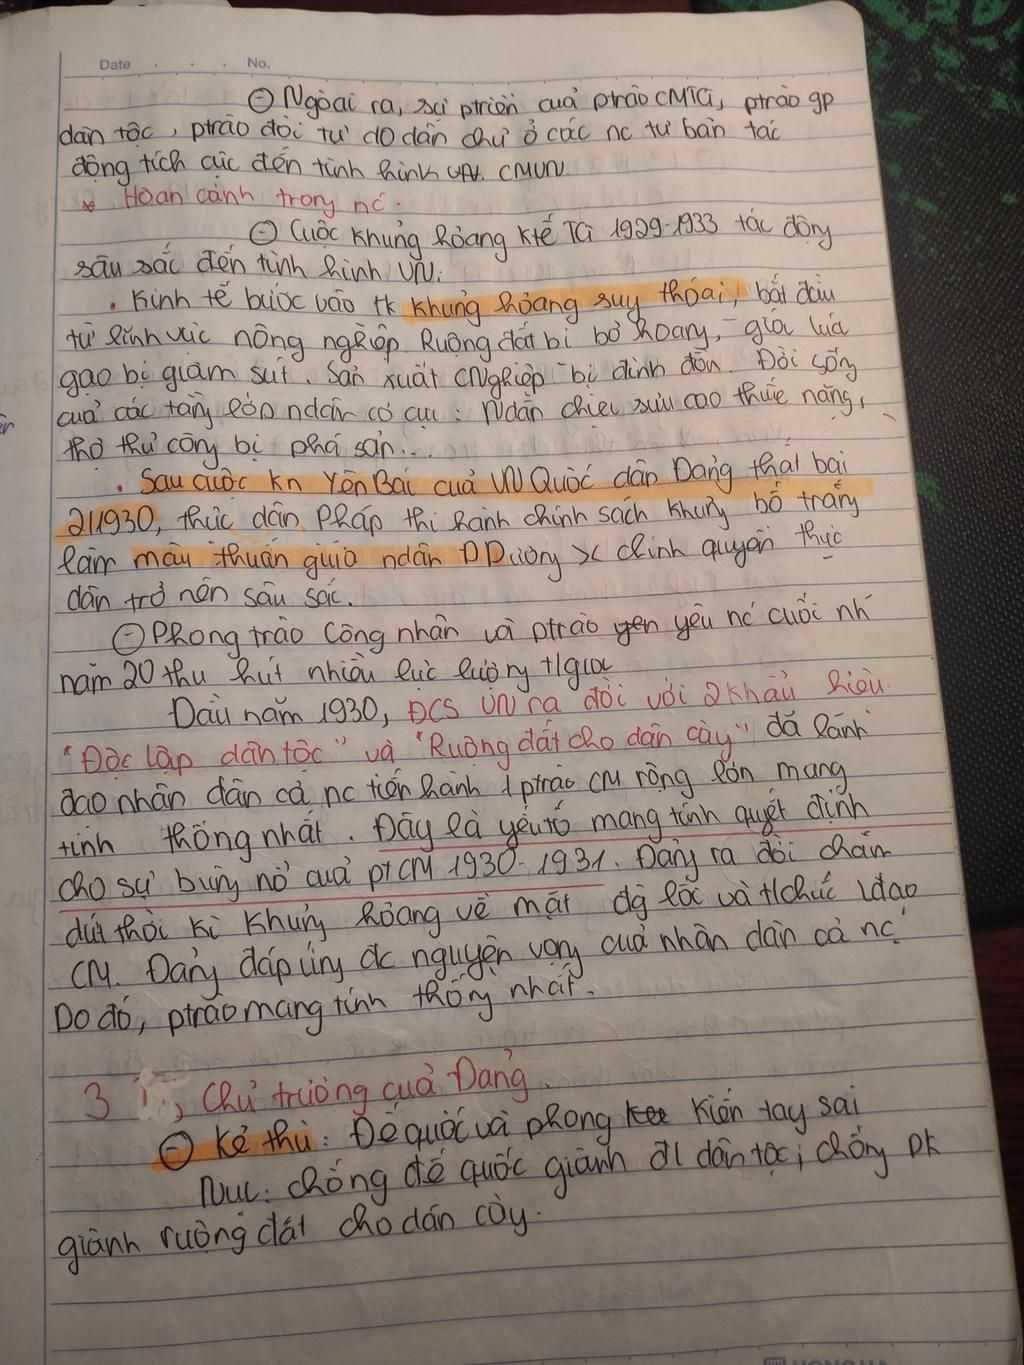 Date . . . No.
⊖ Ngoài ra, sự ptriển của ptrào CMTG, ptrào gp
dân tộc, ptrào đòi tự do dân chủ ở các nc tư bản tác
động tích cực đến tình hình VN. CMVN.
* Hoàn cảnh trong nc.
⊖ Cuộc khủng hoảng Ktế TG 1929-1933 tác động
sâu sắc đến tình hình VN.
• Kinh tế bước vào tk khủng hoảng suy thoái, bắt đầu
từ lĩnh vực nông nghiệp. Ruộng đất bị bỏ hoang, giá lúa
gạo bị giảm sút. Sản xuất CNghiệp bị đình đốn. Đời sống
của các tầng lớp ndân cơ cực: Ndân chịu sưu cao thuế nặng,
thợ thủ công bị phá sản...
• Sau cuộc kn Yên Bái của VN Quốc dân Đảng thất bại
2/1930, thực dân Pháp thi hành chính sách khủng bố trắng
làm mâu thuẫn giữa ndân ĐDương x chính quyền thực
dân trở nên sâu sắc.
⊖ Phong trào công nhân và ptrào yêu nc cuối nh
năm 20 thu hút nhiều lực lượng t/gia
Đầu năm 1930, ĐCS VN ra đời với 2 khẩu hiệu
"Độc lập dân tộc" và "Ruộng đất cho dân cày" đã lãnh
đạo nhân dân cả nc tiến hành 1 ptrào CM rộng lớn mang
tính thống nhất. Đây là yếu tố mang tính quyết định
cho sự bùng nổ của pt CM 1930-1931. Đảng ra đời chấm
dứt thời kì khủng hoảng về mặt đg lối và t/chức lđạo
CM. Đảng đáp ứng đc nguyện vọng của nhân dân cả nc.
Do đó, ptrào mang tính thống nhất.
3, Chủ trương của Đảng.
⊖ Kẻ thù: Đế quốc và phong kiến tay sai
Nvụ: chống đế quốc giành đl dân tộc; chống pk
giành ruộng đất cho dân cày.